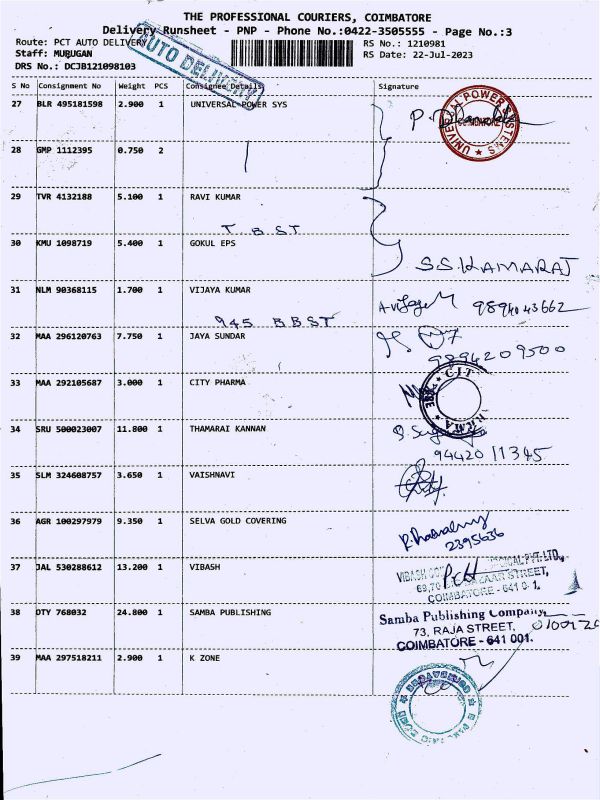 THE PROFESSIONAL COURIERS, COIMBATORE
Delivery Runsheet - PNP - Phone No.:0422-3505555 - Page No.:3
Route: PCT AUTO DELIVERY
RS No.: 1210981
Staff: MURUGAN
RS Date: 22-Jul-2023
DRS No.: DCJB121098103
AUTO DELIVERY
S No Consignment No Weight PCS Consignee Details Signature
27 BLR 495181598 2.900 1 UNIVERSAL POWER SYS
UNIVERSAL POWER SYSTEMS
28 GMP 1112395 0.750 2
29 TVR 4132188 5.100 1 RAVI KUMAR
T B ST
30 KMU 1098719 5.400 1 GOKUL EPS
S.S.KAMARAJ
31 NLM 90368115 1.700 1 VIJAYA KUMAR
945 BBST
32 MAA 296120763 7.750 1 JAYA SUNDAR
9894209500
33 MAA 292105687 3.000 1 CITY PHARMA
34 SRU 500023007 11.800 1 THAMARAI KANNAN
94420 11345
35 SLM 324608757 3.650 1 VAISHNAVI
36 AGR 100297979 9.350 1 SELVA GOLD COVERING
2395636
37 JAL 530288612 13.200 1 VIBASH
VIBASH PVT. LTD.,
STREET,
COIMBATORE - 641 0 1.
38 DTY 768032 24.800 1 SAMBA PUBLISHING
Samba Publishing Company,
73, RAJA STREET,
COIMBATORE - 641 001.
39 MAA 297518211 2.900 1 K ZONE